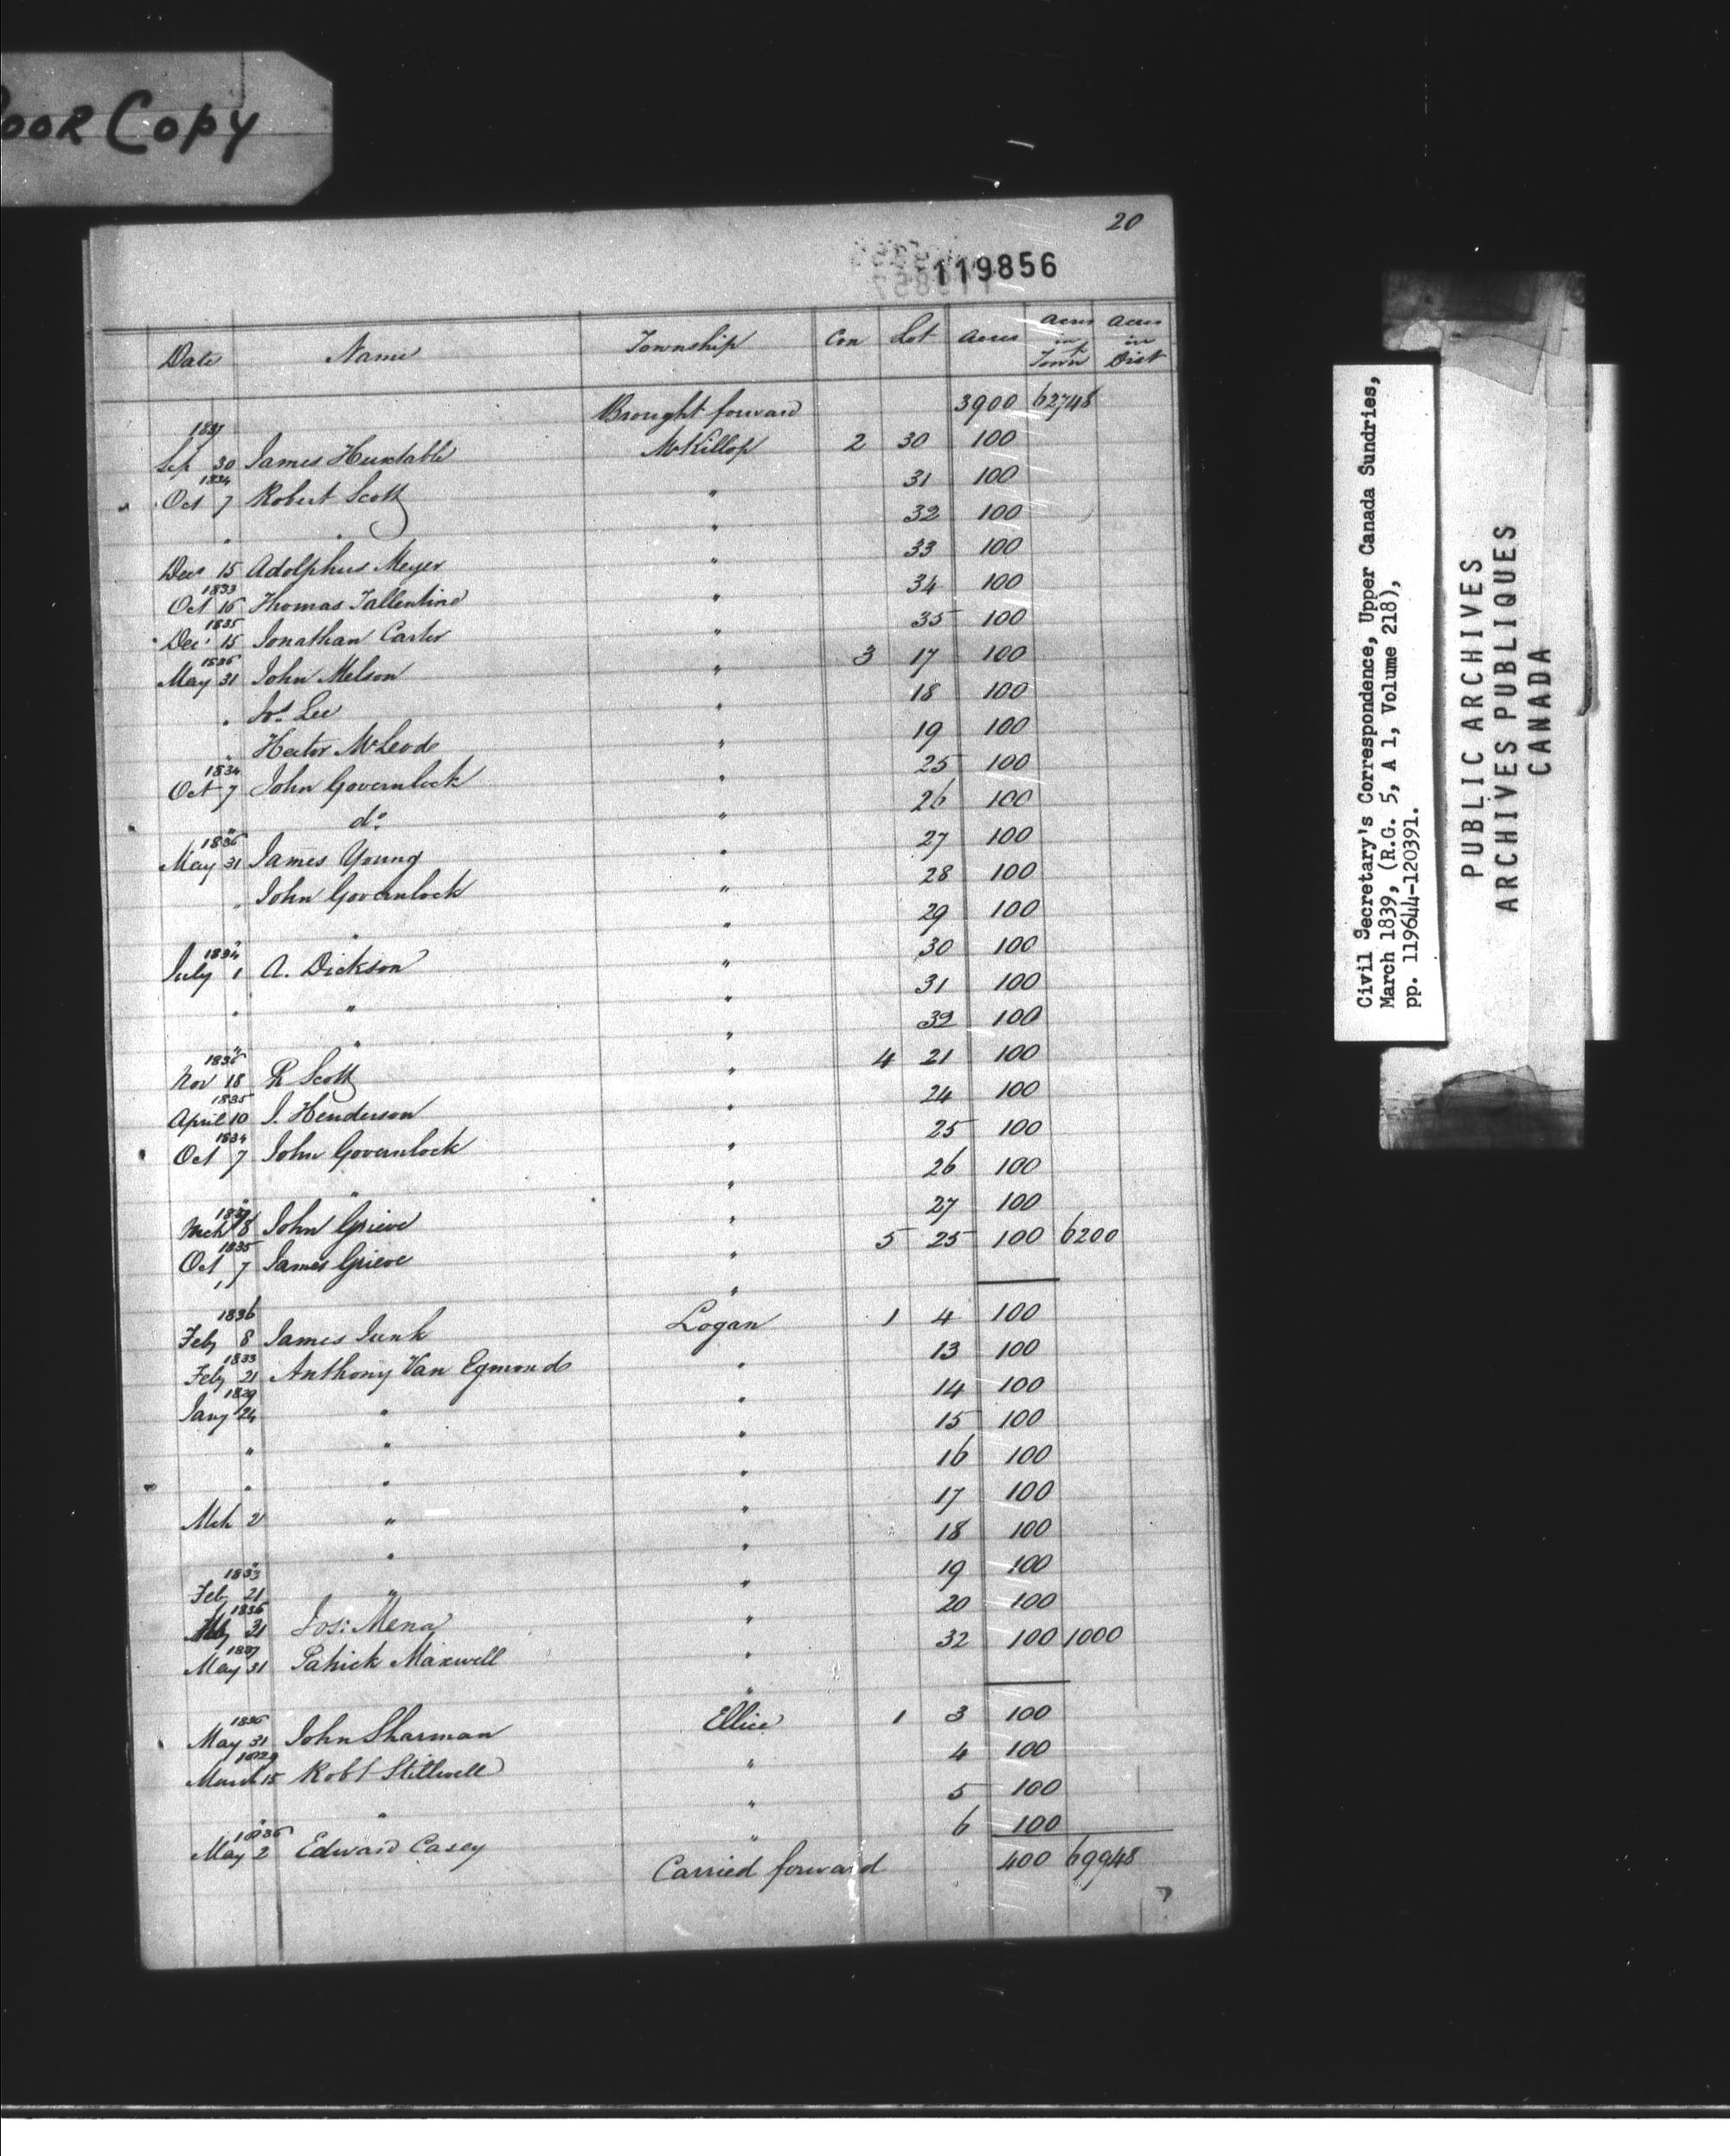 OOR Copy
20
119856
Date Name Township Con Lot Acres Acres in Town Acres in Dist
Brought forward 3900 62748
1837
Sep 30 James Huxtable McKillop 2 30 100
1834
Oct 7 Robert Scott " 31 100
" " " 32 100
Dec 15 Adolphus Meyer " 33 100
1833
Oct 16 Thomas Tallentine " 34 100
1835
Dec 15 Jonathan Carter " 35 100
1836
May 31 John Melson " 3 17 100
" Jos Lee " 18 100
" Hector McLeod " 19 100
1834
Oct 7 John Governlock " 25 100
" do " 26 100
1836
May 31 James Young " 27 100
" John Governlock " 28 100
" " " 29 100
1834
July 1 A. Dickson " 30 100
" " " 31 100
" " " 32 100
1836
Nov 18 R Scott " 4 21 100
1835
April 10 J. Henderson " 24 100
1834
Oct 7 John Governlock " 25 100
" " " 26 100
Mch 8 John Grieve " 27 100
1835
Oct 7 James Grieve " 5 25 100 6200
1836
Feby 8 James Junk Logan 1 4 100
1833
Feby 21 Anthony Van Egmond " 13 100
1829
Jany 24 " " 14 100
" " " 15 100
" " " 16 100
Mch 2 " " 17 100
" " " 18 100
1833
Feby 21 " " 19 100
1836
31 Jos: Mena " 20 100
1837
May 31 Patrick Maxwell " 32 100 1000
1836
May 31 John Sharman Ellice 1 3 100
1829
March 15 Robt Stillwell " 4 100
" " " 5 100
1836
May 2 Edward Casey " 6 100
Carried forward 400 69948
Civil Secretary's Correspondence, Upper Canada Sundries,
March 1839, (R.G. 5, A 1, Volume 218),
pp. 119644-120391.
PUBLIC ARCHIVES
ARCHIVES PUBLIQUES
CANADA